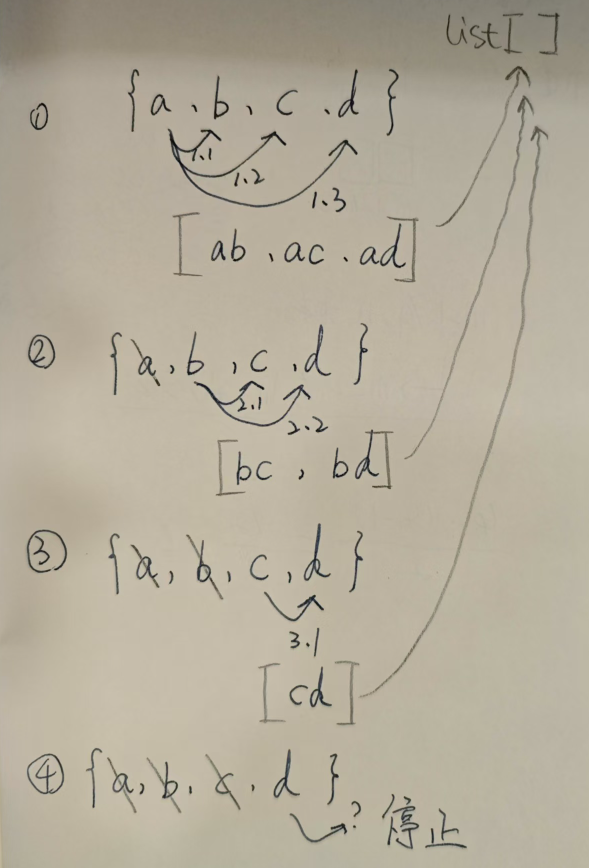 list[ ]
① {a、b、c、d}
1.1
1.2
1.3
[ab、ac、ad]
② {a,b,c,d}
2.1
2.2
[bc, bd]
③ {a,b,c,d}
3.1
[cd]
④ {a,b,c,d}
? 停止